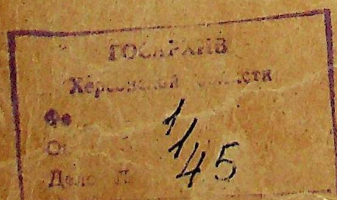 ГОСАРХИВ
Херсонской области
Фо
Оп
1
1
Дело №
45